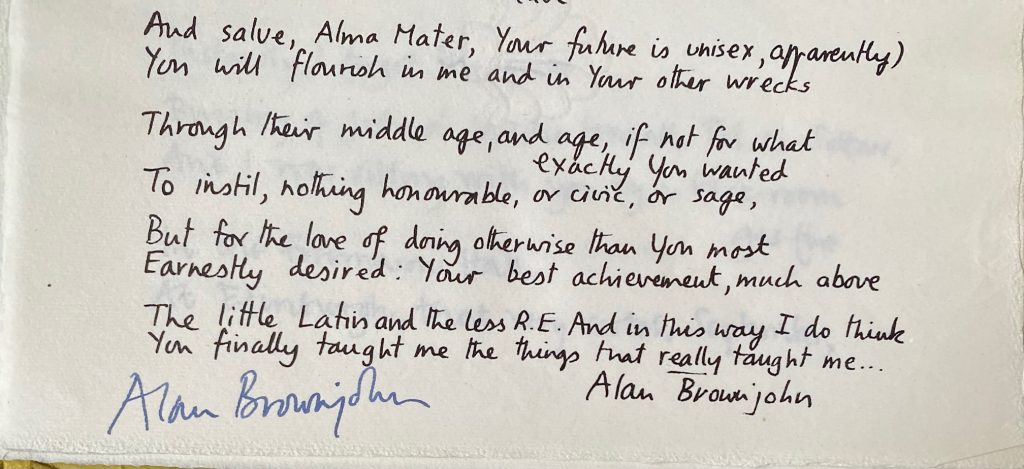 And salve, Alma Mater, Your future is unisex, apparently)
You will flourish in me and in Your other wrecks
Through their middle age, and age, if not for what
exactly You wanted
To instil, nothing honourable, or civic, or sage,
But for the love of doing otherwise than You most
Earnestly desired: Your best achievement, much above
The little Latin and the less R.E. And in this way I do think
You finally taught me the things that really taught me...
Alan Brownjohn
Alan Brownjohn